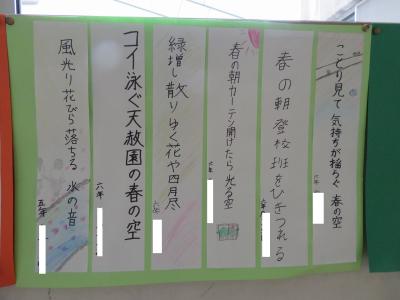 ことり見て気持ちが揺らぐ春の空
六年
春の朝登校班をひきつれる
六年
春の朝カーテン開けたら光る空
六年
緑増し散りゆく花や四月尽
六年
コイ泳ぐ天赦園の春の空
六年
風光り花びら落ちる水の音
五年